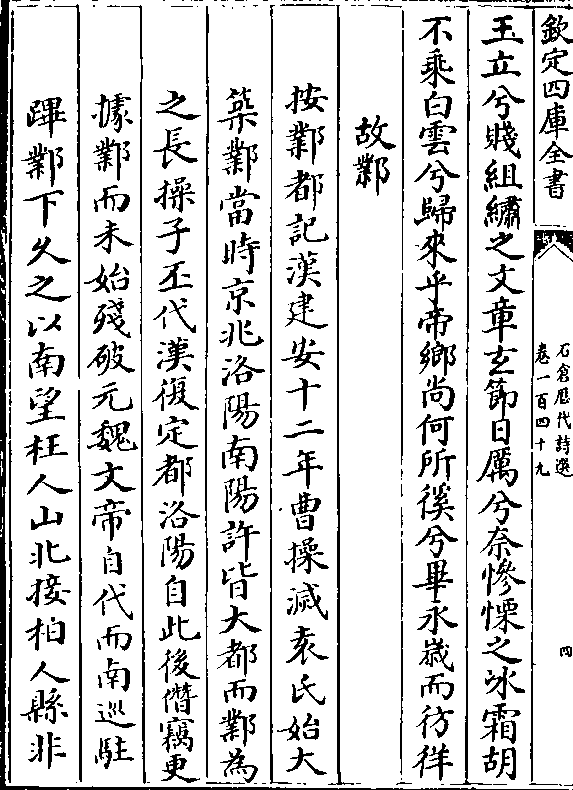 欽定四庫全書
石倉歴代詩選
卷一百四十九
四
玉立兮賤組繡之文章玄節日厲兮奈慘慄之冰霜胡
不乘白雲兮歸來乎帝鄉尚何所徯兮畢永嵗而彷徉
故鄴
按鄴都記漢建安十二年曹操滅袁氏始大
築鄴當時京兆洛陽南陽許皆大都而鄴為
之長操子丕代漢復定都洛陽自此後僭竊更
據鄴而未始殘破元魏文帝自代而南巡駐
蹕鄴下久之以南望枉人山北接柏人縣非